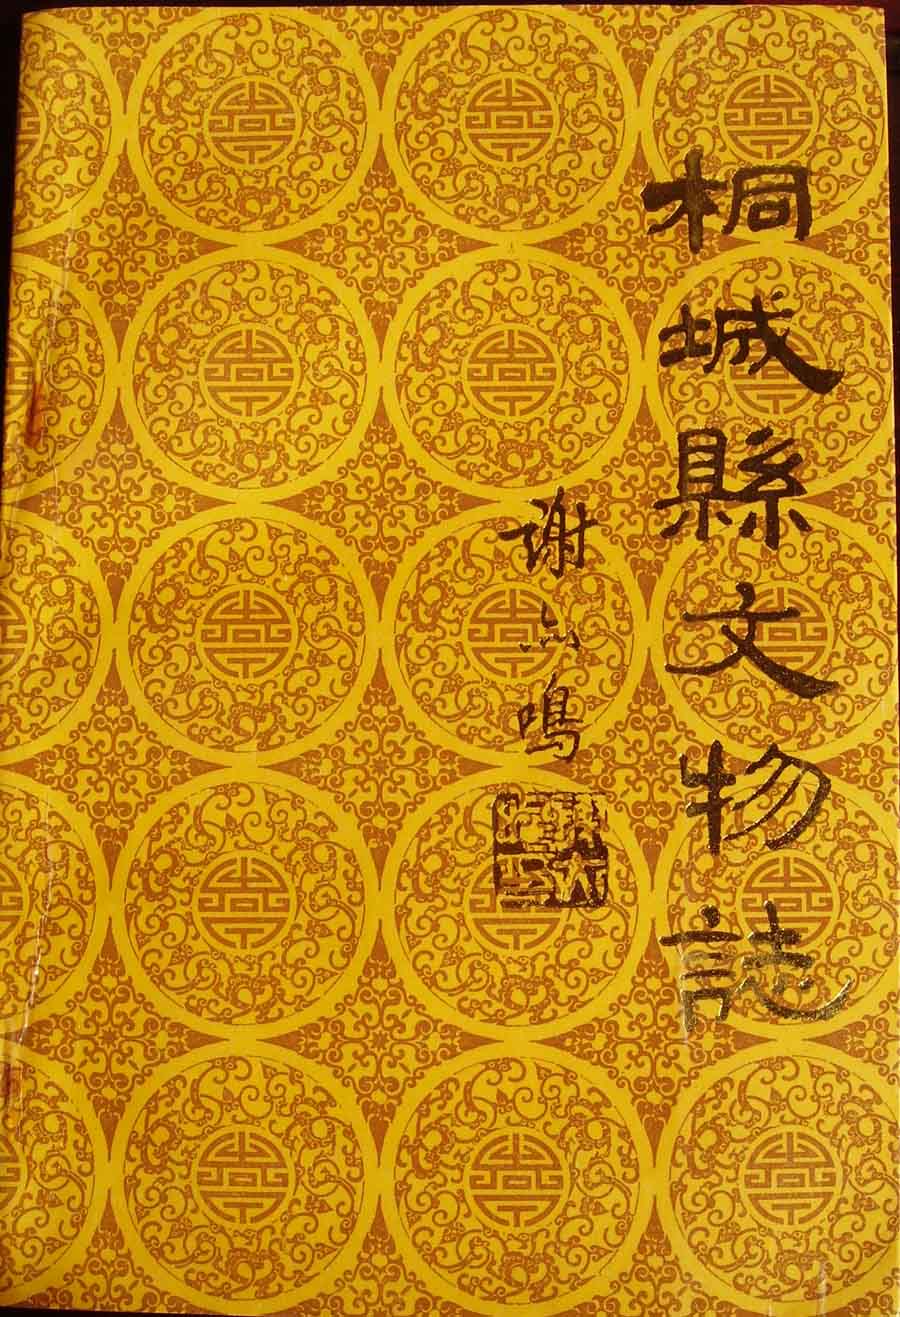 桐城縣文物誌
谢六鳴